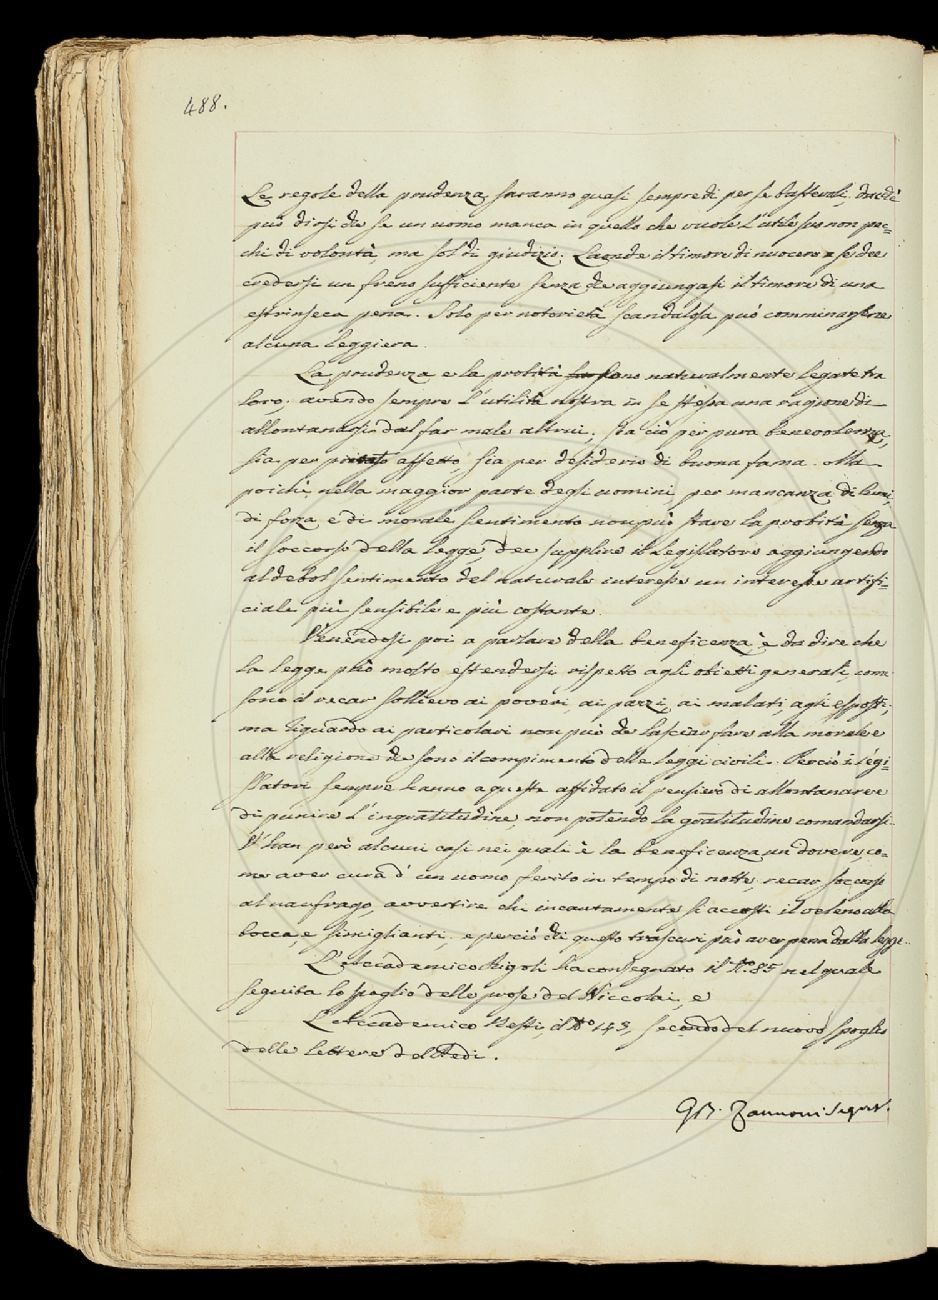 488.
Le regole della prudenza saranno quasi sempre di per se bastevoli, dacchè
può dirsi che se un uomo manca in quello che vuole l'utile suo non pec-
chi di volontà, ma sol di giudizio. Laonde il timore di nuocere a se dee
credersi un freno sufficiente senza che aggiungasi il timore di una
estrinseca pena. Solo per notorietà scandalosa può comminarsene
alcuna leggiera.
La prudenza e la probità sono naturalmente legate tra
loro; avendo sempre l'utilità nostra in se stessa una ragione di
allontanarsi dal far male altrui; sia ciò per pura benevolenza,
sia per privato affetto, sia per desiderio di buona fama. Ma
poichè nella maggior parte degli uomini, per mancanza di lumi,
di forza e di morale sentimento non può stare la probità senza
il soccorso della legge, dee supplire il Legislatore aggiungendo
al debol sentimento del naturale interesse un interesse artifi-
ciale più sensibile e più costante.
Venendosi poi a parlare della beneficenza, è da dire che
la legge può molto estendersi rispetto agli obietti generali, come
sono il recar sollievo ai poveri, ai pazzi, ai malati, agli esposti;
ma riguardo ai particolari non può che lasciar fare alla morale e
alla religione che sono il compimento delle leggi civili. Perciò i legi-
slatori sempre hanno a queste affidato il pensiero di allontanare e
di punire l'ingratitudine, non potendo la gratitudine comandarsi.
V'han però alcuni casi nei quali è la beneficenza un dovere, co-
me aver cura d'un uomo ferito in tempo di notte, recar soccorso
al naufrago, avvertire chi incautamente si accosti il veleno alla
bocca, e simiglianti; e perciò chi questo trascuri può aver pena dalla legge.
L'Accademico Rigoli ha consegnato il N.o 85 nel quale
seguita lo spoglio delle prose del Niccolai, e
L'Accademico Bessi, il N.o 143, secondo del nuovo spoglio
delle lettere del Redi.
GB. Zannoni Segret.